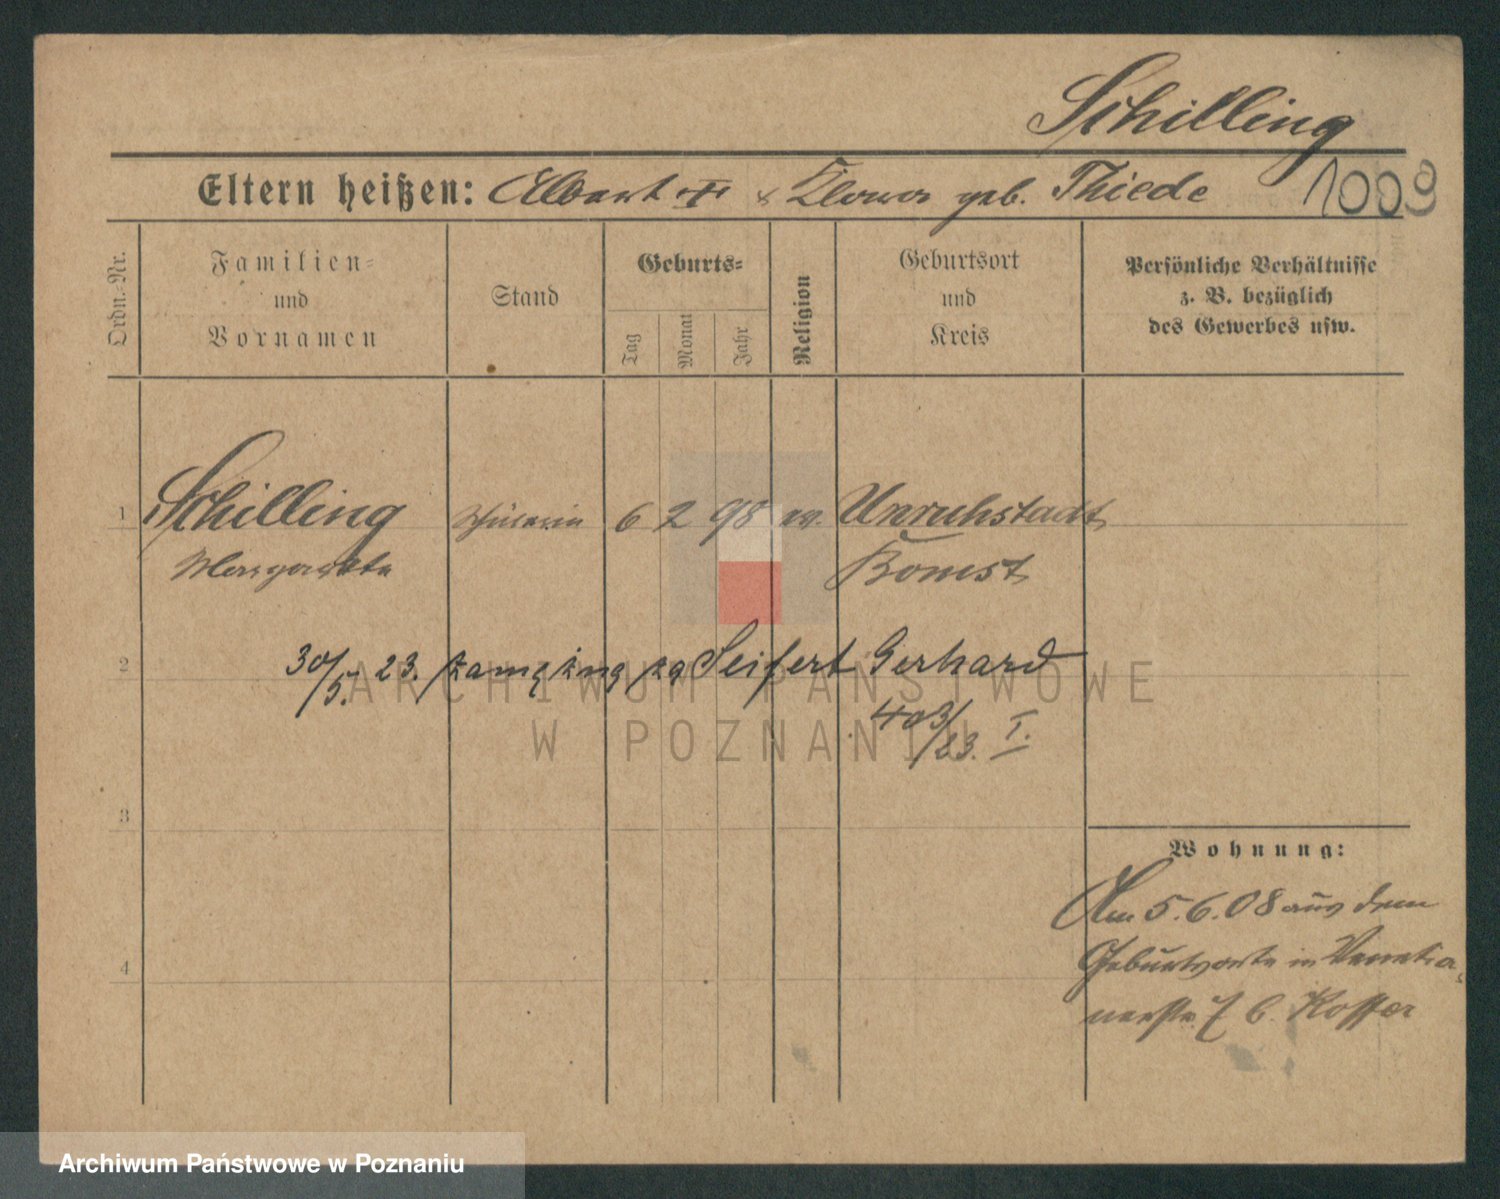 Schilling
Eltern heißen: Albert u. Klara geb. Thiede 1009
Ordn.-Nr.
Familien-
und
Vornamen
Stand
Geburts-
Tag
Monat
Jahr
Religion
Geburtsort
und
Kreis
Persönliche Verhältnisse
z. B. bezüglich
des Gewerbes usw.
1 Schilling Schülerin 6 2 98 ev. Unruhstadt
Margarete Bomst
2 30/5. 23. zamężną za Seifert Gerhard
403/23. I.
ARCHIWUM PAŃSTWOWE
W POZNANIU
3
Wohnung:
Am 5. 6. 08 aus dem
4 Geburtsorte in Venetia-
nerstr. 7 b. Koffer
Archiwum Państwowe w Poznaniu